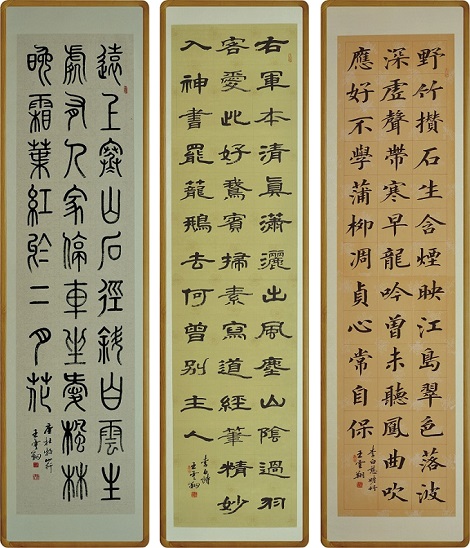 野竹攢石生含煙映江島翠色落波
深虛聲帶寒早龍吟曾未聽鳳曲吹
應好不學蒲柳凋貞心常自保
李白慈姥竹
王雲翔
右軍本清眞瀟灑出風塵山陰過羽
客愛此好鵞賓掃素寫道經筆精妙
入神書罷籠鵝去何曾別主人
李白詩
王雲翔
遠上寒山石徑斜白雲生
處有人家停車坐愛楓林
晚霜葉紅於二月花
唐杜牧山行
王雲翔